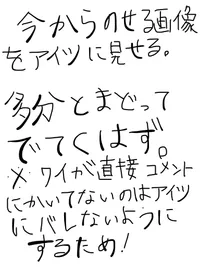 今からのせる画像
をアイツに見せる。
多分とまどって
でてくはず。
※ワイが直接コメント
にかいてないのはアイツ
にバレないように
するため!